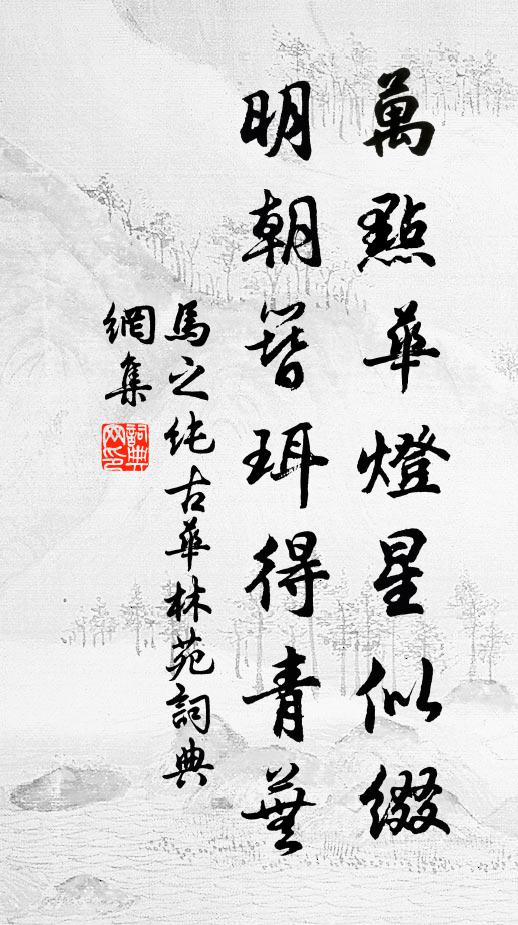 萬點華燈星似綴
明朝簪珥得青蕪
馬之純古華林苑詞典
網集
詞典
网印